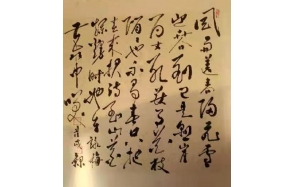 风雨送春归飞雪
迎春到已是悬崖
百丈冰犹有花枝
俏也不争春只把
春来报待到山花
烂熳时她在 詠梅
丛中笑